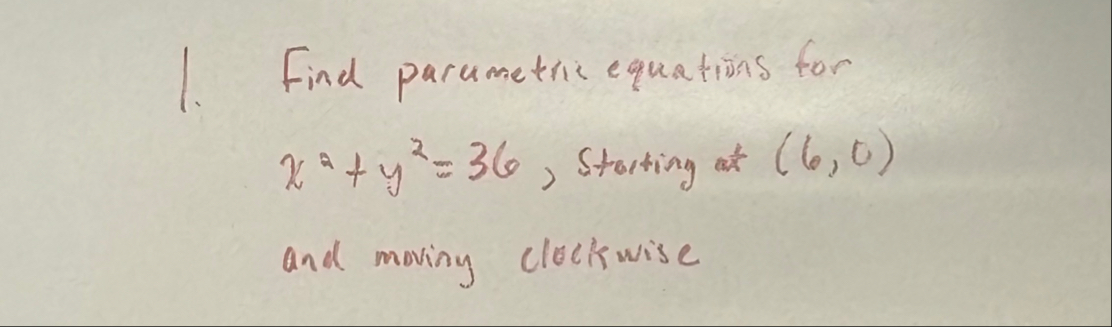 1. Find parametric equations for
x² + y² = 36, starting at (6,0)
and moving clockwise